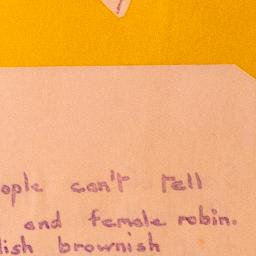 ople can't tell
and female robin.
lish brownish